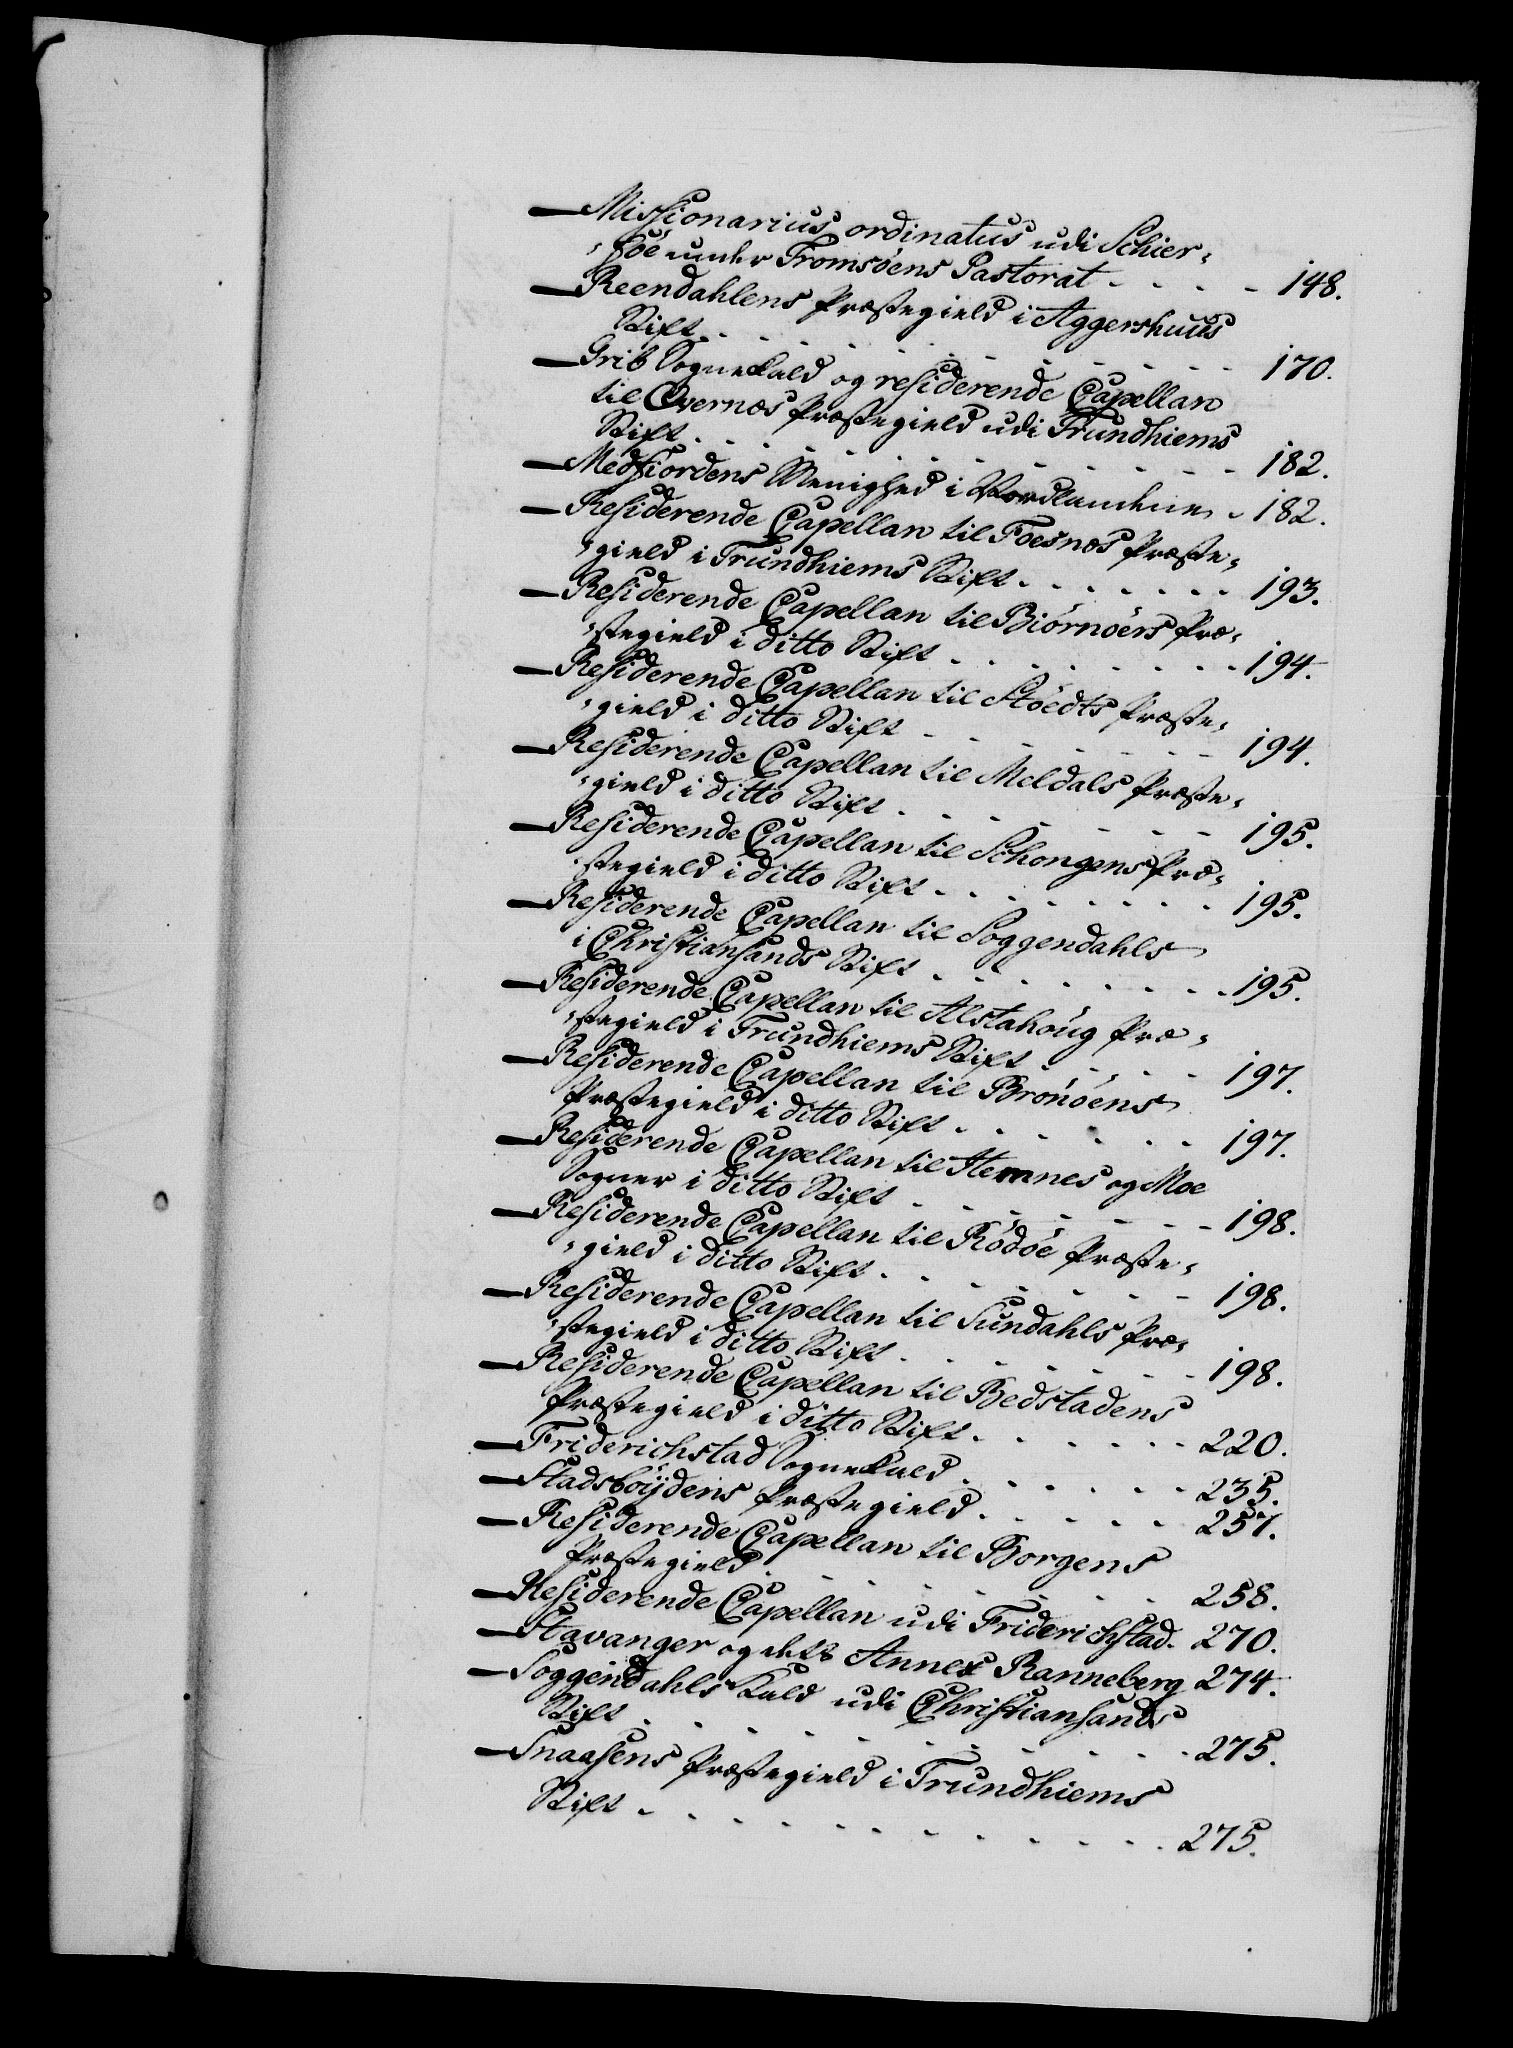 — Missionarius ordinatus udi Schier-
-föe under Tromsöens Pastorat - - - - 148.
— Reendahlens Præstegield i Aggershuus
Stift - - - - - - - - - 170.
— Grib Sognekald og residerende Capellan
til Qvernæs Præstegield udi Trundhiems
Stift - - - - - - - - - 182.
— Medfiordens Menighed i Nordlandene - 182.
— Residerende Capellan til Foesnæs Præste-
-gield i Trundhiems Stift - - - - - - 193.
— Residerende Capellan til Biørnöers Præ-
-stegield i ditto Stift - - - - - - - 194.
— Residerende Capellan til Stöedts Præste-
-gield i ditto Stift - - - - - - - 194.
— Residerende Capellan til Meldals Præste-
-gield i ditto Stift - - - - - - - 195.
— Residerende Capellan til Schongens Præ-
-stegield i ditto Stift - - - - - - - 195.
— Residerende Capellan til Soggendahls
i Christiansands Stift - - - - - - - 195.
— Residerende Capellan til Alstahoug Præ-
-stegield i Trundhiems Stift - - - - - 197.
— Residerende Capellan til Brönöens
Præstegield i ditto Stift - - - - - - 197.
— Residerende Capellan til Hemnes og Moe
Sogner i ditto Stift - - - - - - - 198.
— Residerende Capellan til Rödöe Præste-
-gield i ditto Stift - - - - - - - 198.
— Residerende Capellan til Sundahls Præ-
-stegield i ditto Stift - - - - - - - 198.
— Residerende Capellan til Bedstadens
Præstegield i ditto Stift - - - - - - 220.
— Friderichstad Sognekald - - - - - - 235.
— Stadsböÿdens Præstegield - - - - - 257.
— Residerende Capellan til Borgens
Præstegield - - - - - - - - 258.
— Residerende Capellan udi Friderichstad - 270.
— Stavanger og dets Annex Ranneberg 274.
— Soggendahls Kald udi Christiansands
Stift - - - - - - - - - - 275.
— Snaasens Præstegield i Trundhiems
Stift - - - - - - - - - - 275.